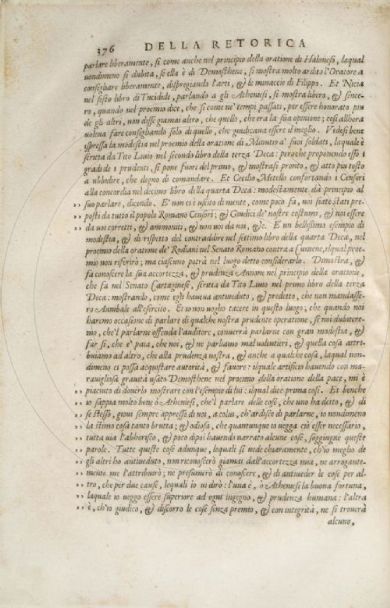 376 DELLA RETORICA
parlare liberamente, sì come anche nel principio della oratione di Halonesi, laqual
nondimeno si dubita, se ella è di Demosthene, si mostra molto ardito l'Oratore a
consigliare liberamente, dispregiando l'arti, & le minaccie di Filippo. Et Nicia
nel sesto libro di Tucidide, parlando a gli Atheniesi, si mostra libero, & since-
ro, quando nel proemio dice, che sì come ne' tempi passati, per essere honorato piu
de gli altri, non disse giamai altro, che quello, che era la sua opinione; così allhora
voleva fare consigliando solo di quello, che giudicava essere il meglio. Videsi bene
espressa la modestia nel proemio della oratione di Minutio a' suoi soldati, laquale è
scritta da Tito Livio nel secondo libro della terza Deca: perche proponendo esso i
gradi de i prudenti, si pone fuori del primo, & mostrasi pronto, & atto piu tosto
a ubbidire, che degno di comandare. Et Cecilio Metello confortando i Censori
alla concordia nel decimo libro della quarta Deca: modestamente dà principio al
,, suo parlare, dicendo. E' non ci è uscito di mente, come poco fa, noi siate stati pre-
,, posti da tutto il popolo Romano Censori, & Giudici de' nostri costumi, & noi essere
,, da voi corretti, & ammoniti, & non voi da noi, &c. E un bellissimo esempio di
modestia, & di rispetto del contradire nel settimo libro della quarta Deca, nel
proemio della oratione de' Rodiani nel Senato Romano contra a Eumene, ilqual proe-
mio non riferirò; ma ciascuno potrà nel luogo detto considerarlo. Dimostra, &
fa conoscere la sua accortezza, & prudenza Annone nel principio della oratione,
che fa nel Senato Cartaginese, scritta da Tito Livio nel primo libro della terza
Deca: mostrando, come egli haveva antiveduto, & predetto, che non mandasse-
ro Annibale all'esercito. Et io non voglio tacere in questo luogo; che quando noi
haremo occasione di parlare di qualche nostra prudente operatione, se noi dubitere-
mo, che'l parlarne offenda l'auditore, converrà parlarne con gran modestia, &
far sì, che e' paia, che noi, & ne parliamo malvolentieri, & quella cosa attri-
buiamo ad altro, che alla prudenza nostra, & anche a qualche cosa, laqual non-
dimeno ci possa acquistare autorità, & favore: ilquale artificio havendo con ma-
ravigliosa gravità usato Demosthene nel proemio della oratione della pace, mi è
piaciuto di doverlo mostrare con l'esempio di lui: ilqual dice prima così. Et benche
,, io sappia molto bene ò Atheniesi, che'l parlare delle cose, che uno ha dette, & di
,, se stesso, giova sempre appresso di voi, a colui, ch'ardisce di parlarne, io nondimeno
,, la stimo cosa tanto brutta; & odiosa, che quantunque io vegga ciò esser necessario,
,, tutta via l'abborrisco, & poco dipoi havendo narrato alcune cose, soggiugne queste
,, parole. Tutte queste cose adunque, lequali si vede chiaramente, ch'io meglio de
,, gli altri ho antiveduto, non riconoscerò giamai dall'accortezza mia, ne arrogante-
,, mente me l'attribuirò; ne presumerò di conoscere, & di antiveder le cose per al-
,, tro, che per due cause, lequali io vi dirò: l'una è, ò Atheniesi la buona fortuna,
,, laquale io veggo essere superiore ad ogni ingegno, & prudenza humana: l'altra
,, è, ch'io giudico, & discorro le cose senza premio, & con integrità, ne si troverà
alcuno,